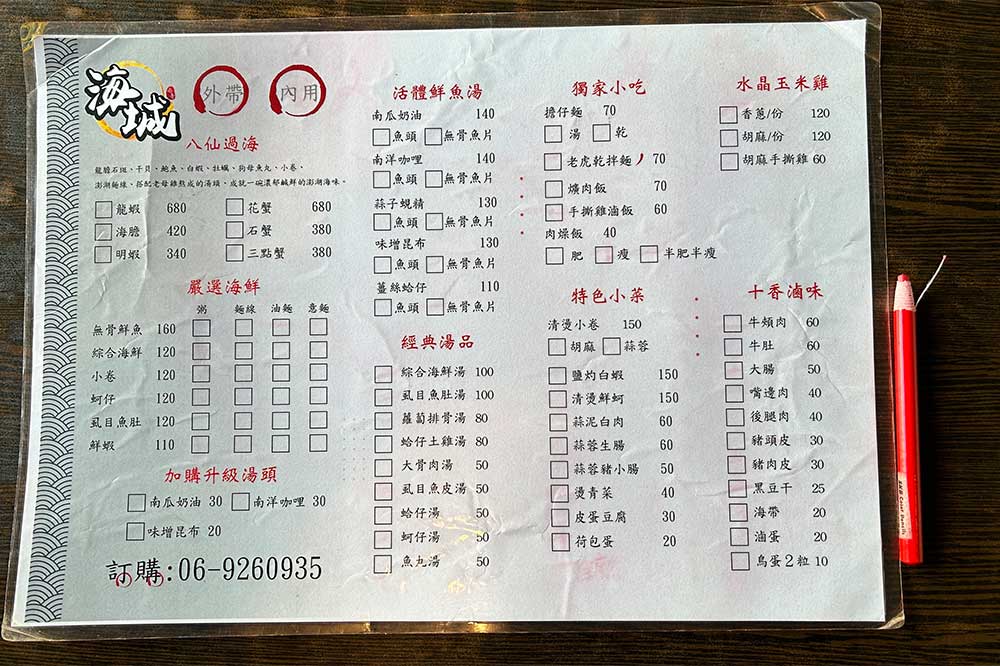 海城
外帶 內用
八仙過海
龍膽石斑、干貝、鮑魚、白蝦、牡蠣、狗母魚丸、小卷、
澎湖麵線、搭配老母雞熬成的湯頭、成就一碗濃郁鹹鮮的澎湖海味。
龍蝦 680 花蟹 680
海膽 420 石蟹 380
明蝦 340 三點蟹 380
嚴選海鮮
粥 麵線 油麵 意麵
無骨鮮魚 160
綜合海鮮 120
小卷 120
蚵仔 120
虱目魚肚 120
鮮蝦 110
加購升級湯頭
南瓜奶油 30 南洋咖哩 30
味增昆布 20
訂購:06-9260935
活體鮮魚湯
南瓜奶油 140
魚頭 無骨魚片
南洋咖哩 140
魚頭 無骨魚片
蒜子蜆精 130
魚頭 無骨魚片
味增昆布 130
魚頭 無骨魚片
薑絲蛤仔 110
魚頭 無骨魚片
經典湯品
綜合海鮮湯 100
虱目魚肚湯 100
蘿蔔排骨湯 80
蛤仔土雞湯 80
大骨肉湯 50
虱目魚皮湯 50
蛤仔湯 50
蚵仔湯 50
魚丸湯 50
獨家小吃
擔仔麵 70
湯 乾
老虎乾拌麵 70
爌肉飯 70
手撕雞滷飯 60
肉燥飯 40
肥 瘦 半肥半瘦
特色小菜
清燙小卷 150
胡麻 蒜蓉
鹽灼白蝦 150
清燙鮮蚵 150
蒜泥白肉 60
蒜蓉生腸 60
蒜蓉豬小腸 50
燙青菜 40
皮蛋豆腐 30
荷包蛋 20
水晶玉米雞
香蔥/份 120
胡麻/份 120
胡麻手撕雞 60
十香滷味
牛頰肉 60
牛肚 60
大腸 50
嘴邊肉 40
後腿肉 40
豬頭皮 30
豬肉皮 30
黑豆干 25
海帶 20
滷蛋 20
鳥蛋2粒 10